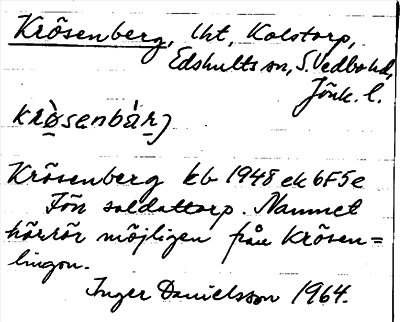 Krösenberg, lht, Kolstorp,
Edshults sn, S. Vedbo hd,
Jönk. l.
Krösenberg kb 1948 ek 6F5e
Förr soldattorp. Namnet
härrör möjligen från krösen=
lingon.
Inger Danielsson 1964.